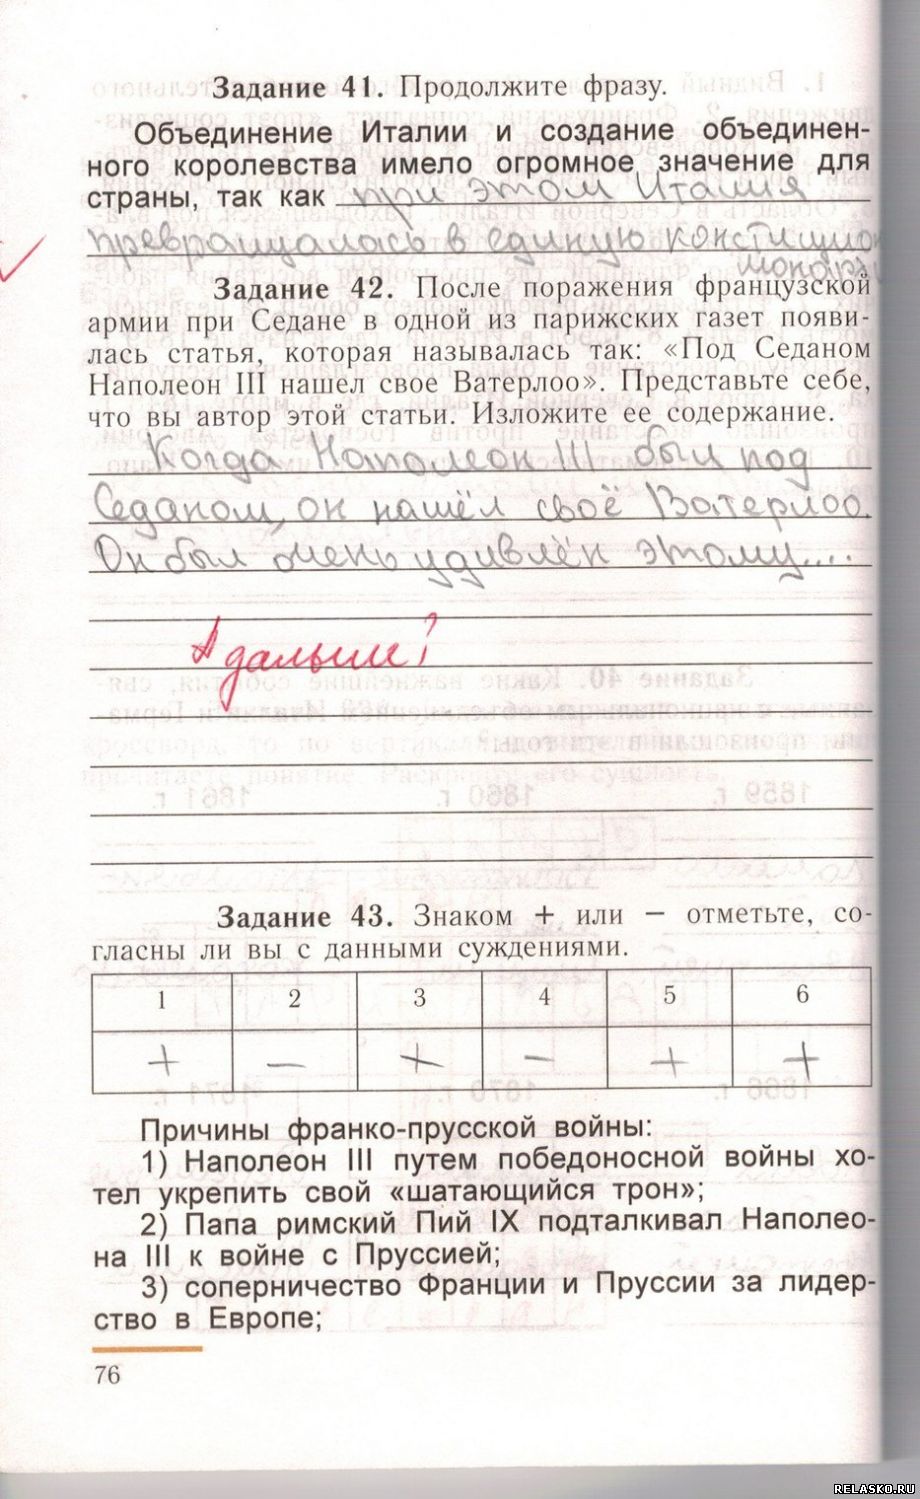 Задание 41. Продолжите фразу.
Объединение Италии и создание объединен-
ного королевства имело огромное значение для
страны, так как при этом Италия
превращалась в единую констицион
монарх
Задание 42. После поражения французской
армии при Седане в одной из парижских газет появи-
лась статья, которая называлась так: «Под Седаном
Наполеон III нашел свое Ватерлоо». Представьте себе,
что вы автор этой статьи. Изложите ее содержание.
Когда Наполеон III был под
Седаном, он нашёл своё Ватерлоо.
Он был очень удивлён этому....
А дальше?
Задание 43. Знаком + или − отметьте, со-
гласны ли вы с данными суждениями.
1 2 3 4 5 6
+ − + − + +
Причины франко-прусской войны:
1) Наполеон III путем победоносной войны хо-
тел укрепить свой «шатающийся трон»;
2) Папа римский Пий IX подталкивал Наполео-
на III к войне с Пруссией;
3) соперничество Франции и Пруссии за лидер-
ство в Европе;
76
RELASKO.RU